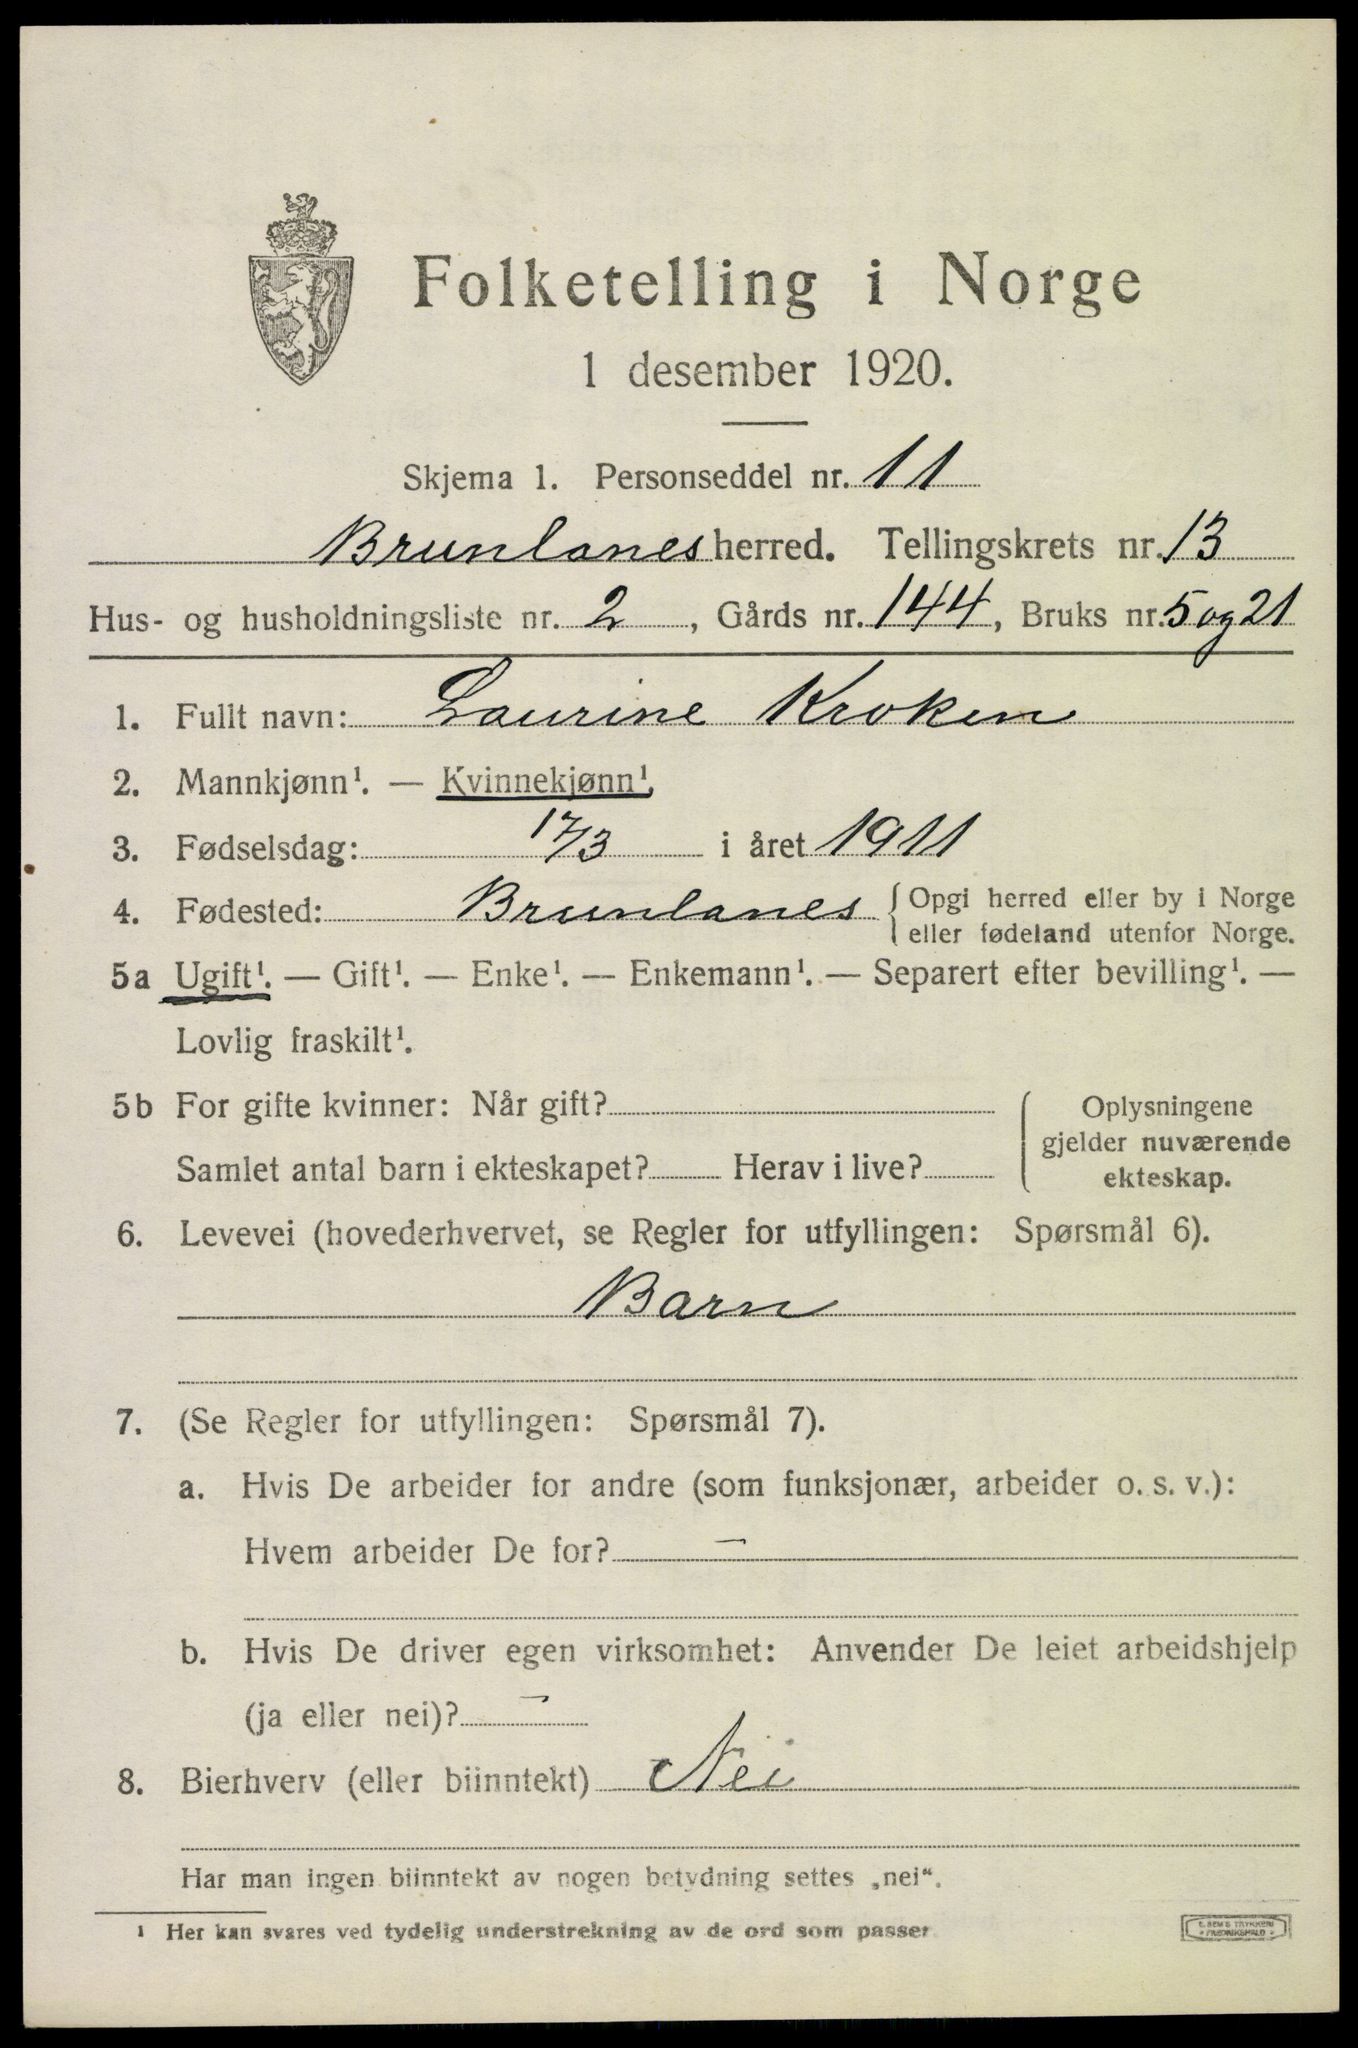 Folketelling i Norge
1 desember 1920.
Skjema 1. Personseddel nr. 11
Brunlanes herred. Tellingskrets nr. 13
Hus- og husholdningsliste nr. 2, Gårds nr. 144, Bruks nr. 5 og 21
1. Fullt navn: Laurine Kroken
2. Mannkjønn¹. — Kvinnekjønn¹.
3. Fødselsdag: 17/3 i året 1911
4. Fødested: Brunlanes {Opgi herred eller by i Norge
eller fødeland utenfor Norge.
5a Ugift¹. — Gift¹. — Enke¹. — Enkemann¹. — Separert efter bevilling¹. —
Lovlig fraskilt¹.
5b For gifte kvinner: Når gift?
Samlet antal barn i ekteskapet? Herav i live?
Oplysningene
gjelder nuværende
ekteskap.
6. Levevei (hovederhvervet, se Regler for utfyllingen: Spørsmål 6).
Barn
7. (Se Regler for utfyllingen: Spørsmål 7).
a. Hvis De arbeider for andre (som funksjonær, arbeider o. s. v.):
Hvem arbeider De for? —
b. Hvis De driver egen virksomhet: Anvender De leiet arbeidshjelp
(ja eller nei)? —
8. Bierhverv (eller biinntekt) Nei
Har man ingen biinntekt av nogen betydning settes „nei“.
¹ Her kan svares ved tydelig understrekning av de ord som passer
E. SEMS TRYKKERI
FREDRIKSHALD